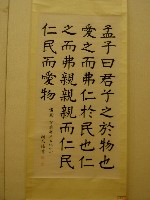 孟子曰君子之於物也
愛之而弗仁於民也仁
之而弗親親親而仁民
仁民而愛物